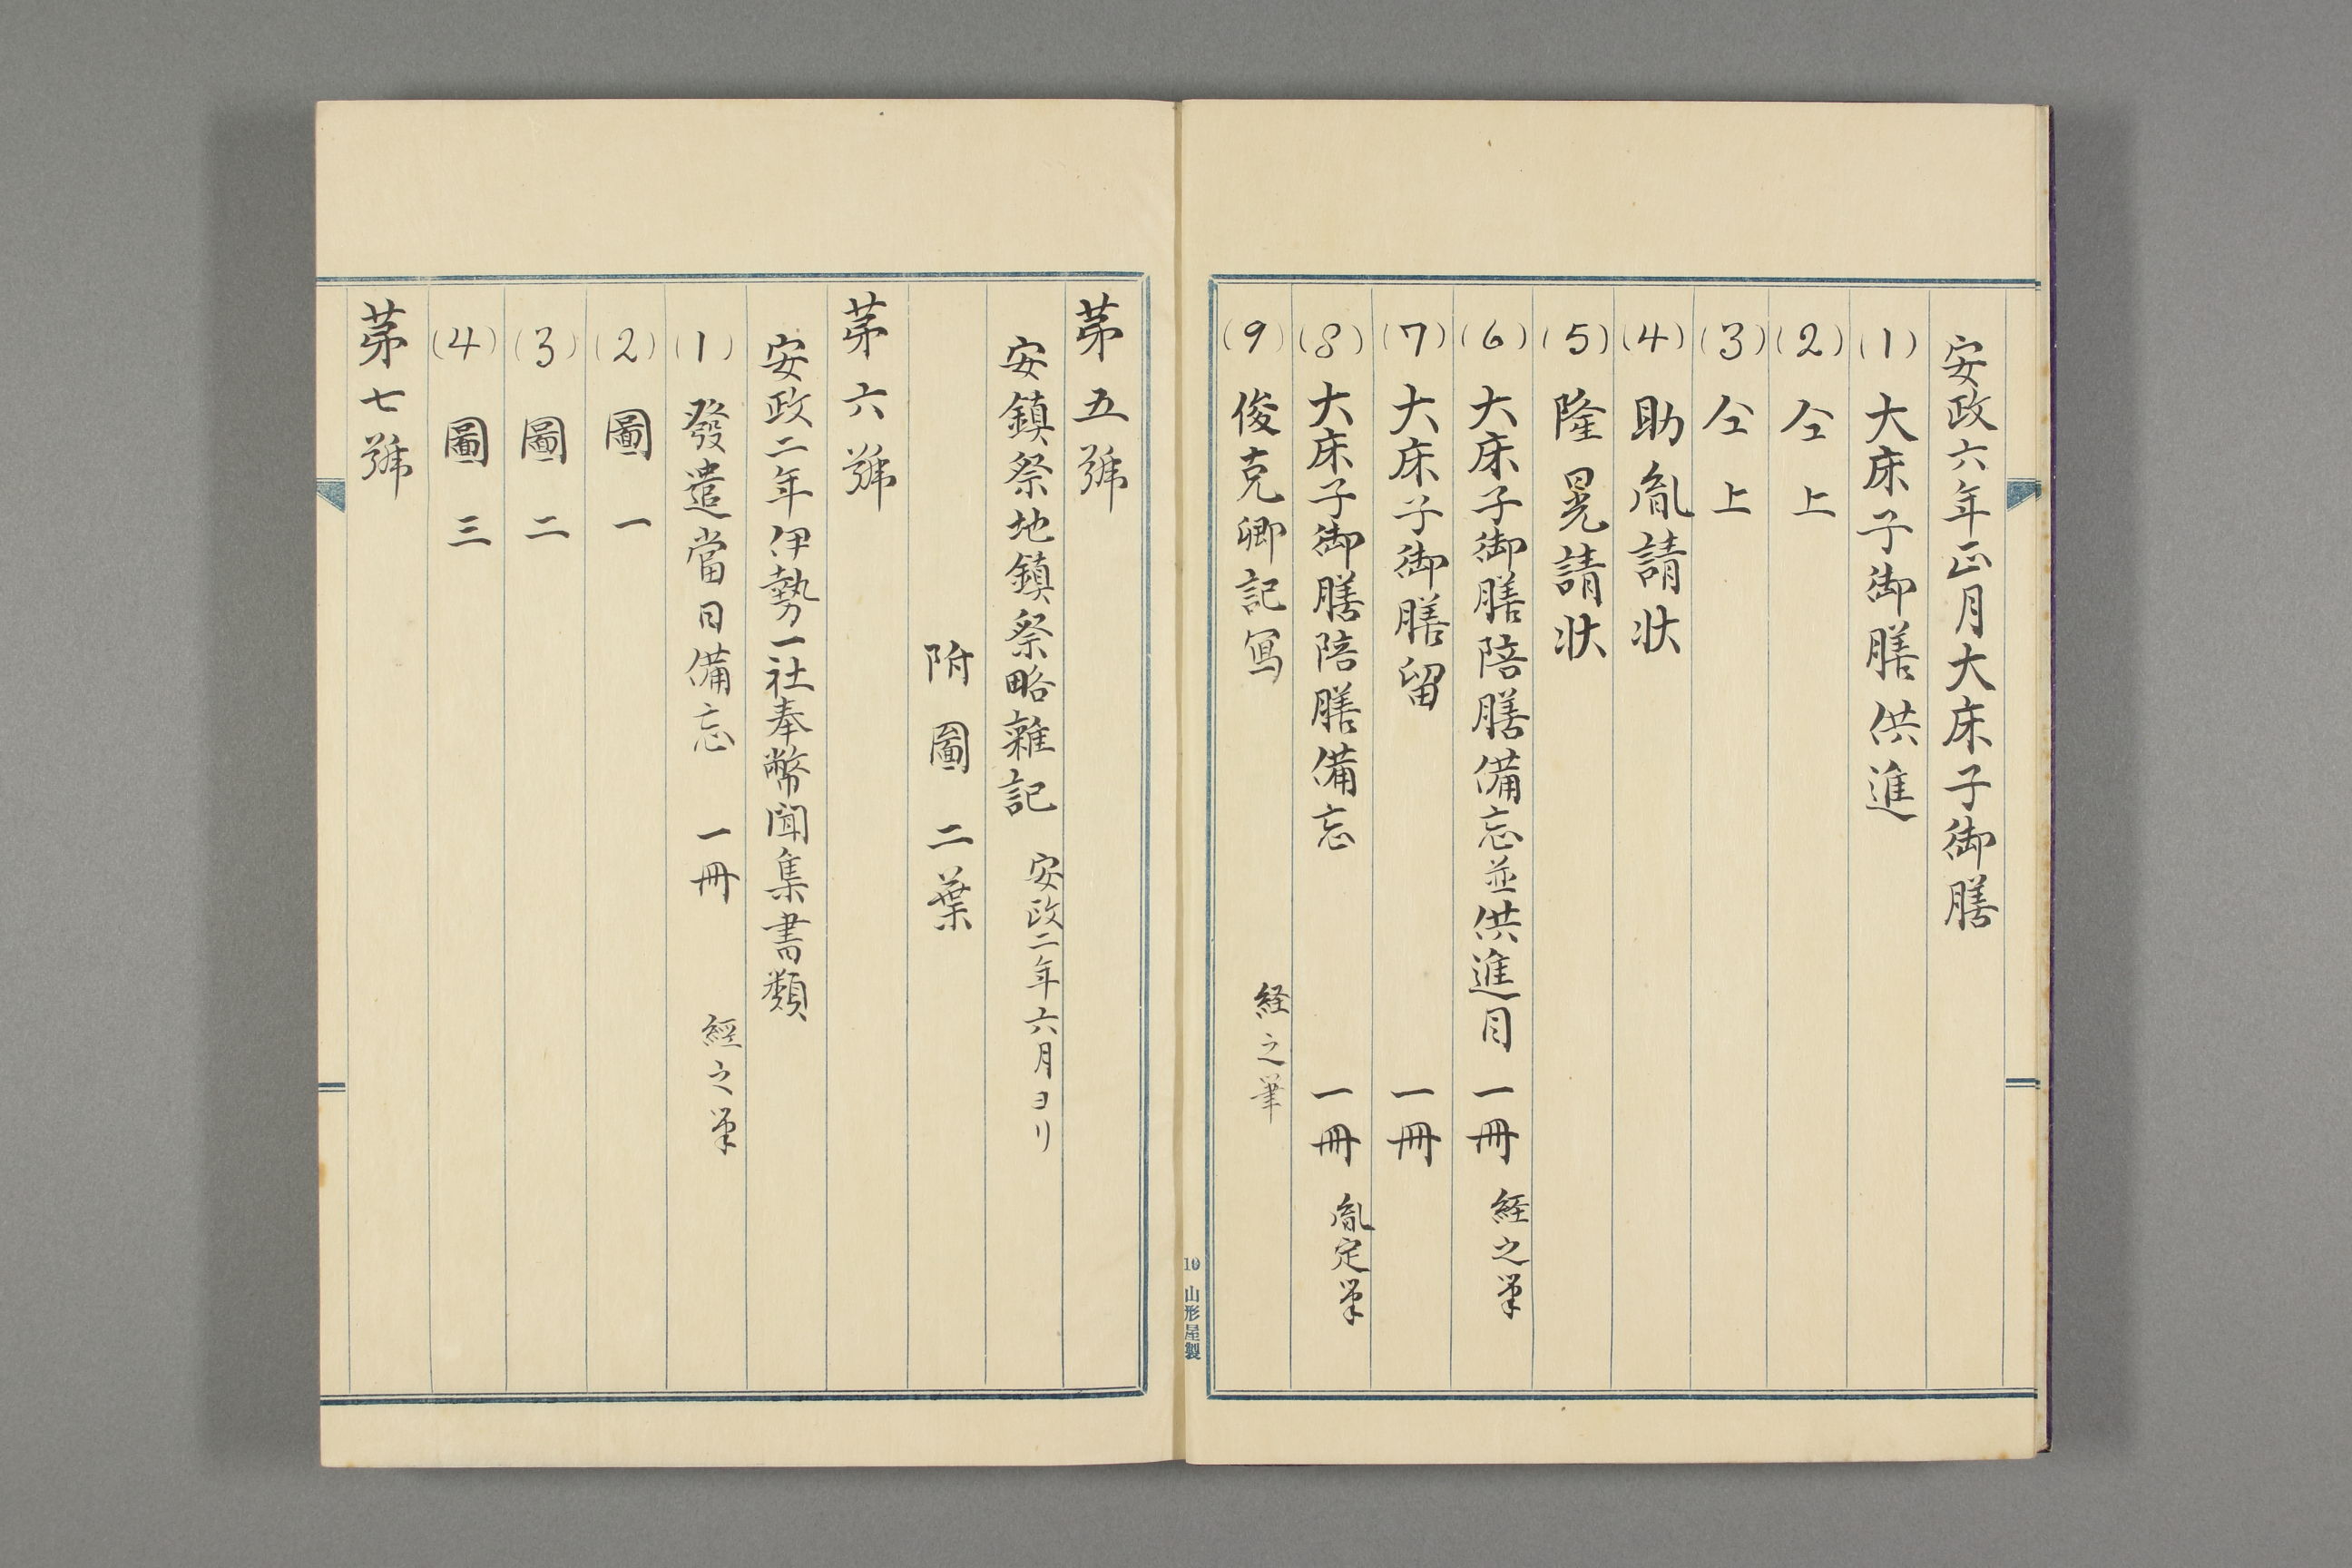 安政六年正月大床子御膳
(1) 大床子御膳供進
(2) 仝上
(3) 仝上
(4) 助胤請状
(5) 隆晃請状
(6) 大床子御膳陪膳備忘並供進目 一冊 経之筆
(7) 大床子御膳留 一冊
(8) 大床子御膳陪膳備忘 一冊 胤定筆
(9) 俊克卿記寫 経之筆
10 山形屋製
第五號
安鎮祭地鎮祭略雜記 安政二年六月ヨリ
附圖二葉
第六號
安政二年伊勢一社奉幣聞集書類
(1) 發遣當日備忘 一冊 經之筆
(2) 圖一
(3) 圖二
(4) 圖三
第七號